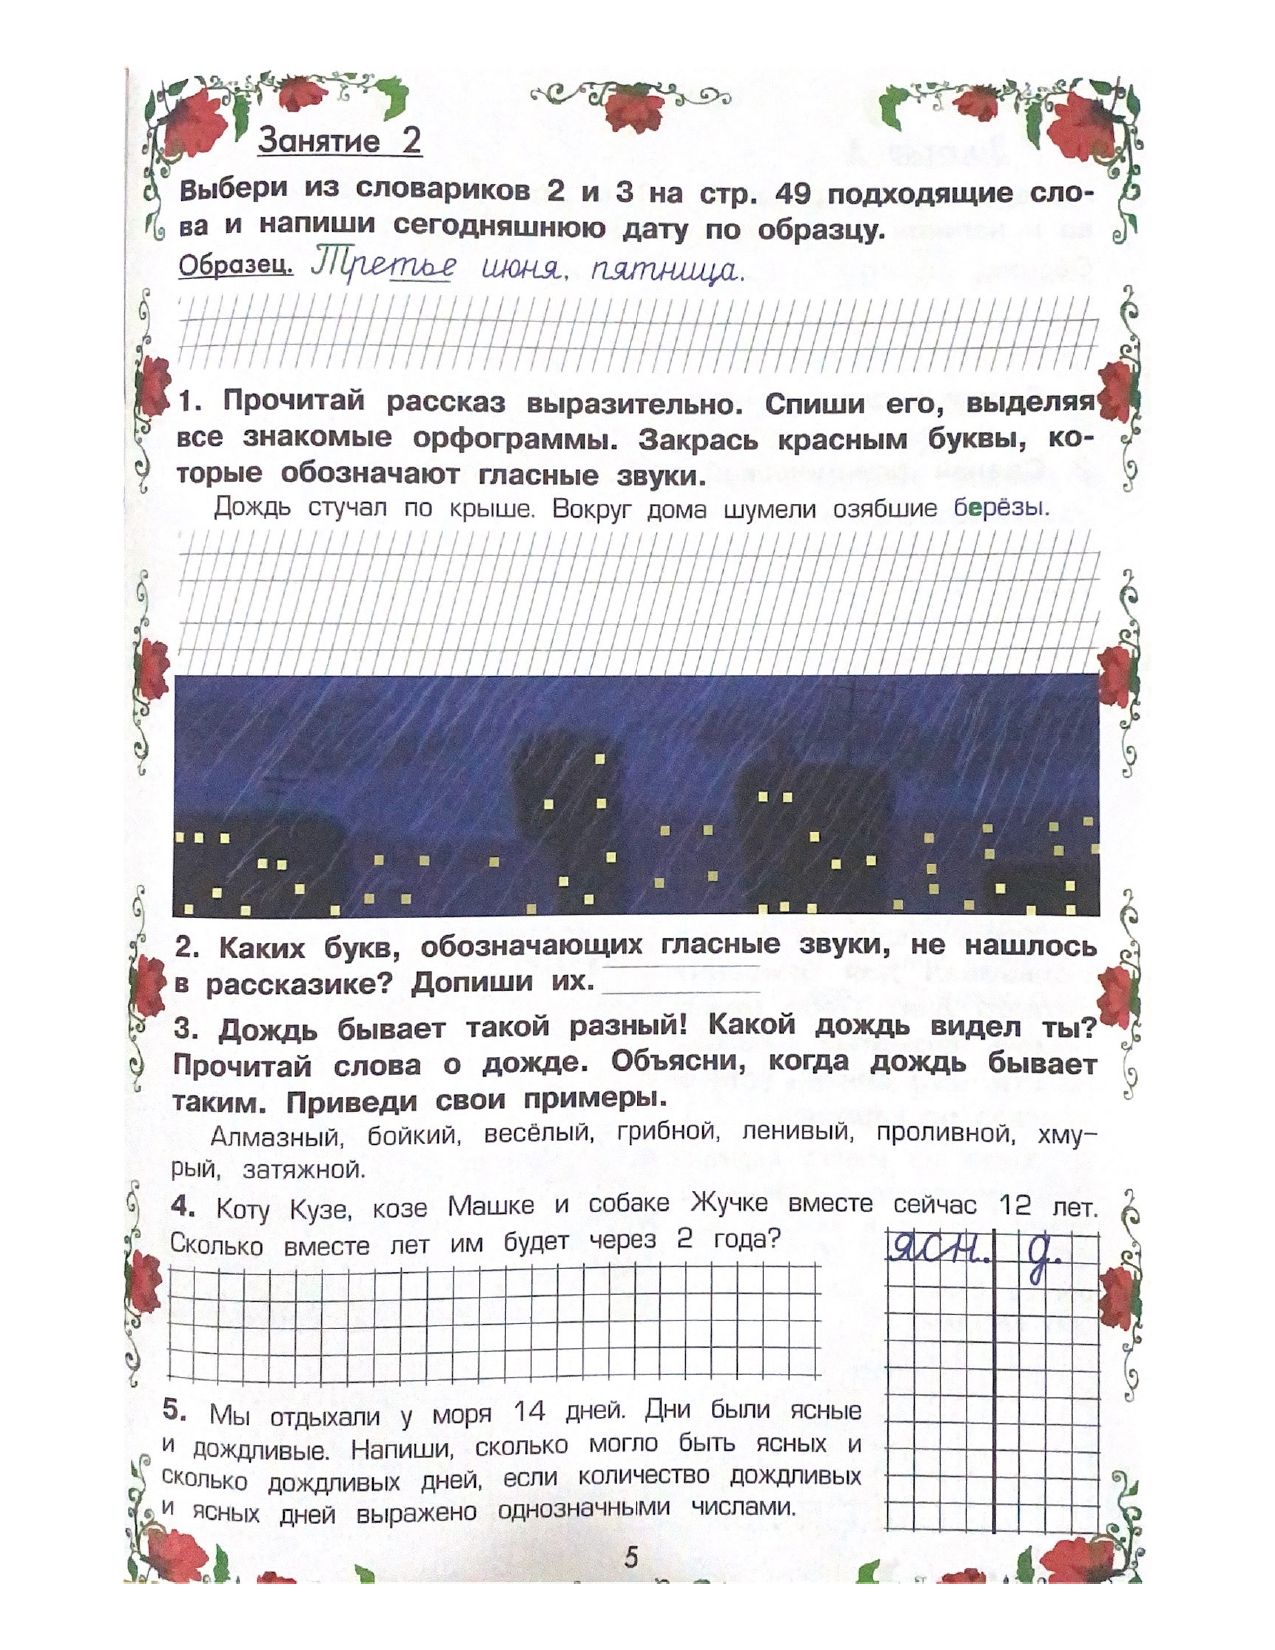 Занятие 2
Выбери из словариков 2 и 3 на стр. 49 подходящие сло-
ва и напиши сегодняшнюю дату по образцу.
Образец. Третье июня, пятница.
1. Прочитай рассказ выразительно. Спиши его, выделяя
все знакомые орфограммы. Закрась красным буквы, ко-
торые обозначают гласные звуки.
Дождь стучал по крыше. Вокруг дома шумели озябшие берёзы.
2. Каких букв, обозначающих гласные звуки, не нашлось
в рассказике? Допиши их.
3. Дождь бывает такой разный! Какой дождь видел ты?
Прочитай слова о дожде. Объясни, когда дождь бывает
таким. Приведи свои примеры.
Алмазный, бойкий, весёлый, грибной, ленивый, проливной, хму-
рый, затяжной.
4. Коту Кузе, козе Машке и собаке Жучке вместе сейчас 12 лет.
Сколько вместе лет им будет через 2 года?
ясн. д.
5. Мы отдыхали у моря 14 дней. Дни были ясные
и дождливые. Напиши, сколько могло быть ясных и
сколько дождливых дней, если количество дождливых
и ясных дней выражено однозначными числами.
5